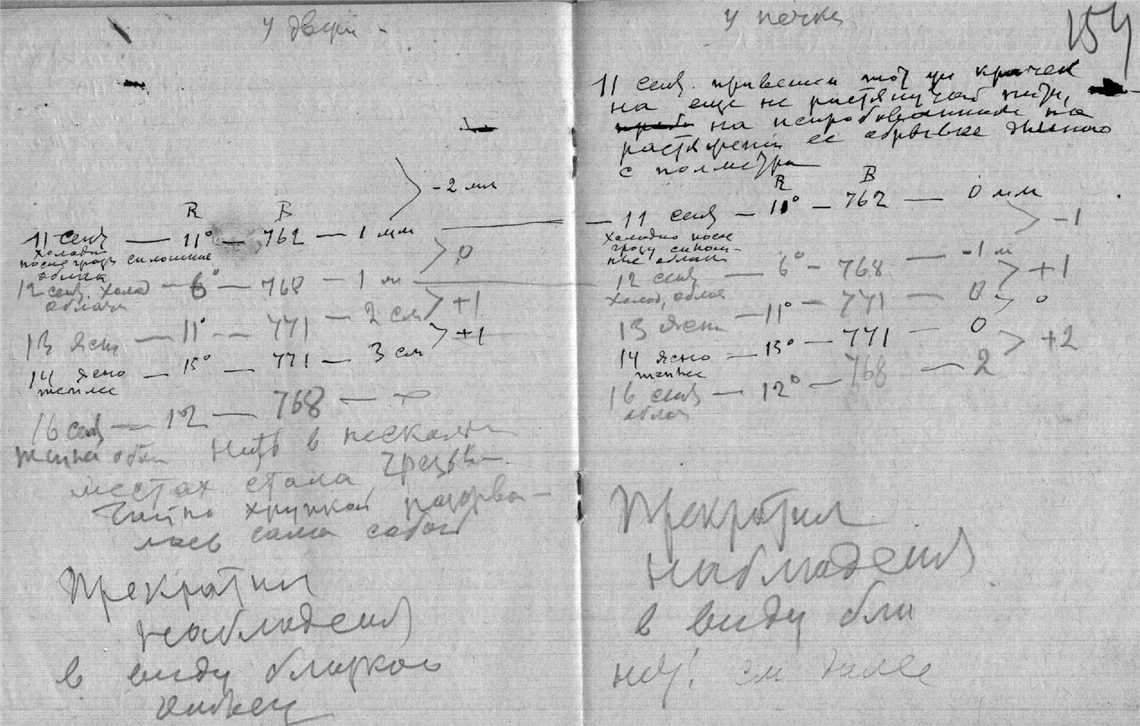 у двери
R B
> -2 мм
11 сент — 11° — 762 — 1 мм
холодн
после грозы сплошные
облака
> 0
12 сент. холод — 6° — 768 — 1 м
облачн
> +1
13 ясн — 11° — 771 — 2 см
> +1
14 ясно — 15° — 771 — 3 см
теплее
16 сент — 12 — 768 —
Нить в нескольк
местах стала чрезвы-
чайно хрупкой разорва-
лась сама собой
Прекратил
наблюдения
в виду близкого
у печки
154
11 сент. привешен тот же крючек
на еще не растянутой нити,
на испробованной на
растяжении ее обрывке длиною
с полметра
R B
11 сент — 11° — 762 — 0 мм
холодно после
грозы сплош-
ные облака
> -1
12 сент — 6° — 768 — -1 м
холод, облач
> +1
13 ясн — 11° — 771 — 0
> 0
14 ясно — 15° — 771 — 0
теплее
> +2
16 сент — 12° — 768 — 2
облач
Прекратил
наблюдения
в виду
см далее